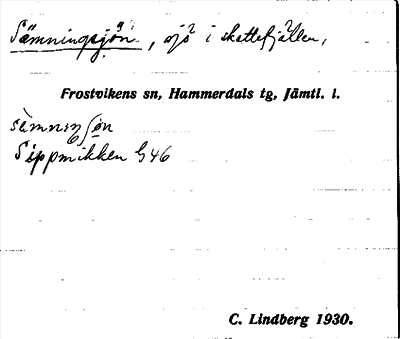 Sämningsjön, sjö i skattefjällen,
Frostvikens sn, Hammerdals tg, Jämtl. l.
Sippmikken G46
C. Lindberg 1930.